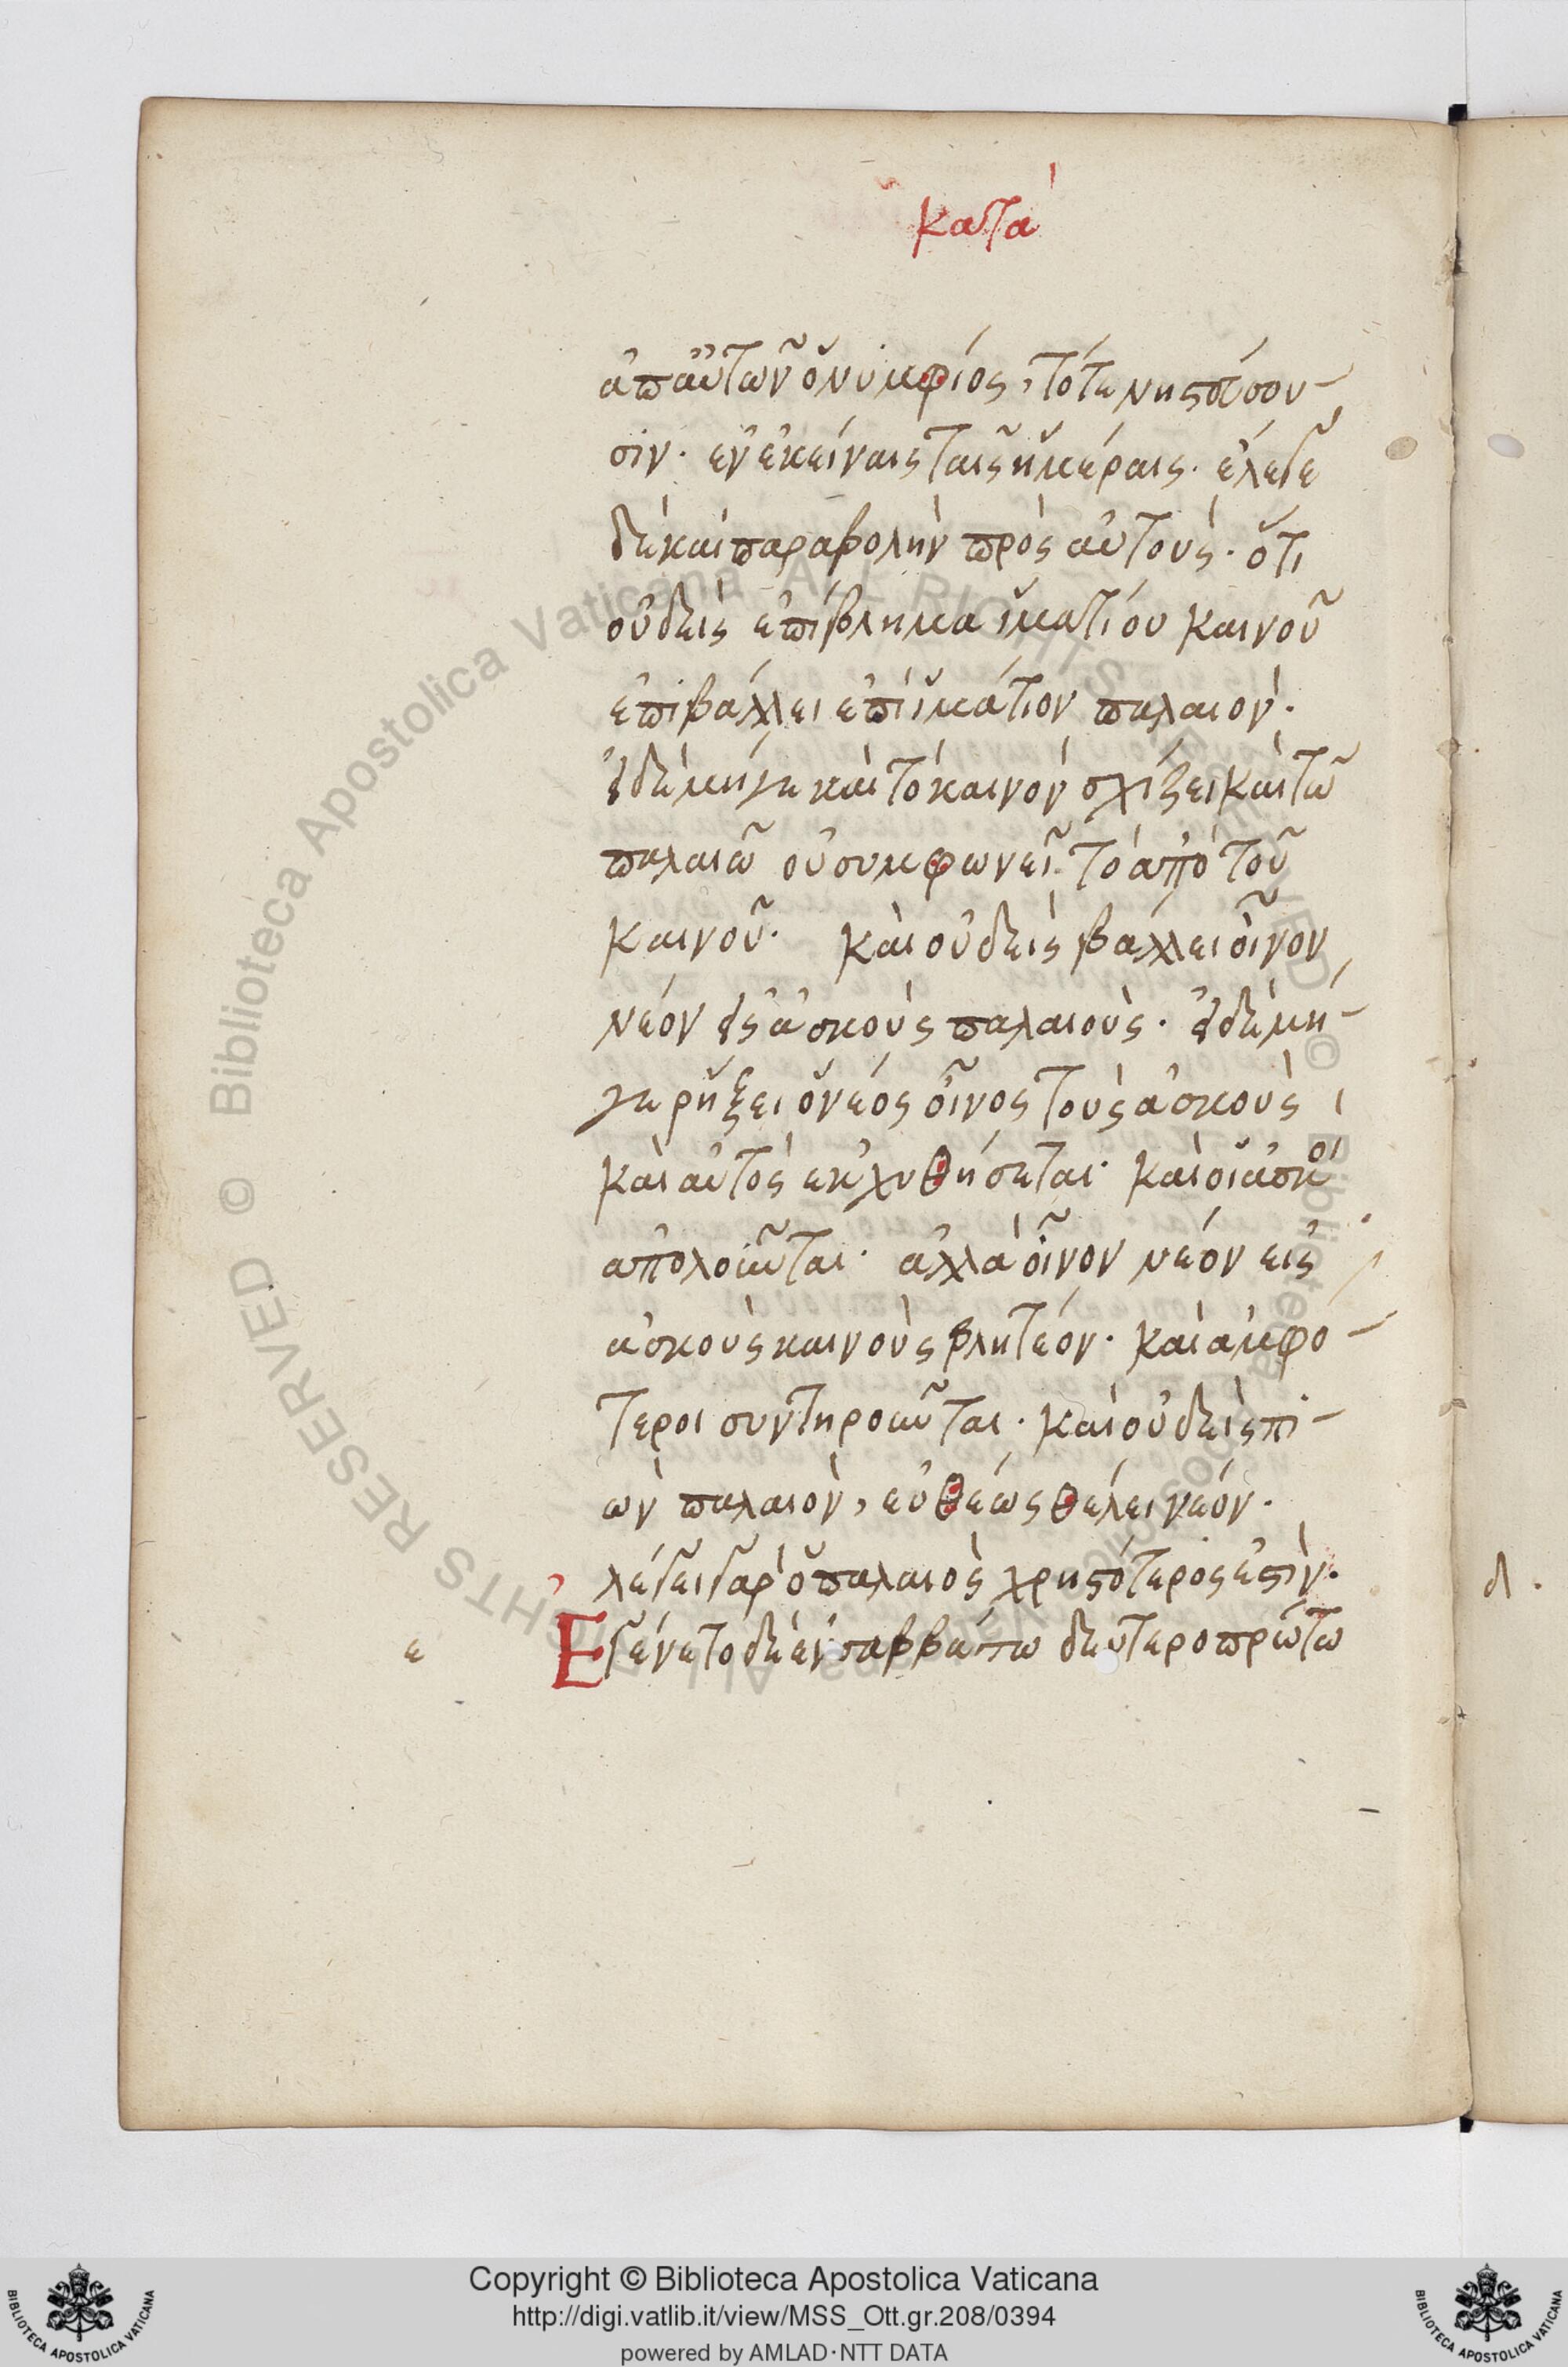 κατὰ
ἀπαὐτῶν ὁ νυμφίος, τότε νηστεύσου-
σιν· ἐν ἐκείναις ταῖς ἡμέραις· ἔλεγε
δὲ καὶ παραβολὴν πρὸς αὐτούς· ὅτι
οὐδεὶς ἐπίβλημα ἱματίου καινοῦ
ἐπιβάλλει ἐπὶ ἱμάτιον παλαιόν·
εἰ δὲ μήγε καὶ τὸ καινὸν σχίζει καὶ τῶ
παλαιῶ οὐ συμφωνεῖ τὸ ἀπὸ τοῦ
καινοῦ· καὶ οὐδεὶς βάλλει οἶνον
νέον εἰς ἀσκοὺς παλαιούς· εἰ δὲ μή-
γε ῥήξει ὁ νέος οἶνος τοὺς ἀσκοὺς
καὶ αὐτὸς ἐκχυθήσεται· καὶ οἱ ἀσκοὶ
ἀπολοῦνται· ἀλλὰ οἶνον νέον εἰς
ἀσκοὺς καινοὺς βλητέον· καὶ ἀμφό-
τεροι συντηροῦνται· καὶ οὐδεὶς πι-
ὼν παλαιὸν, εὐθέως θέλει νέον·
λέγει γὰρ ὁ παλαιὸς χρηστότερός ἐστιν·
ε Ἐγένετο δὲ ἐν σαββάτω δευτεροπρώτω
Copyright © Biblioteca Apostolica Vaticana
http://digi.vatlib.it/view/MSS_Ott.gr.208/0394
powered by AMLAD·NTT DATA